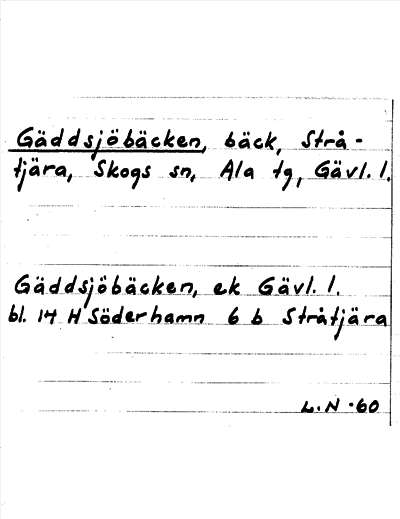 Gäddsjöbäcken, bäck, Strå-
tjära, Skogs sn, Ala tg, Gävl. l.
Gäddsjöbäcken, ek Gävl. l.
bl. 14 H Söderhamn 6 b Stråtjära
L.N -60